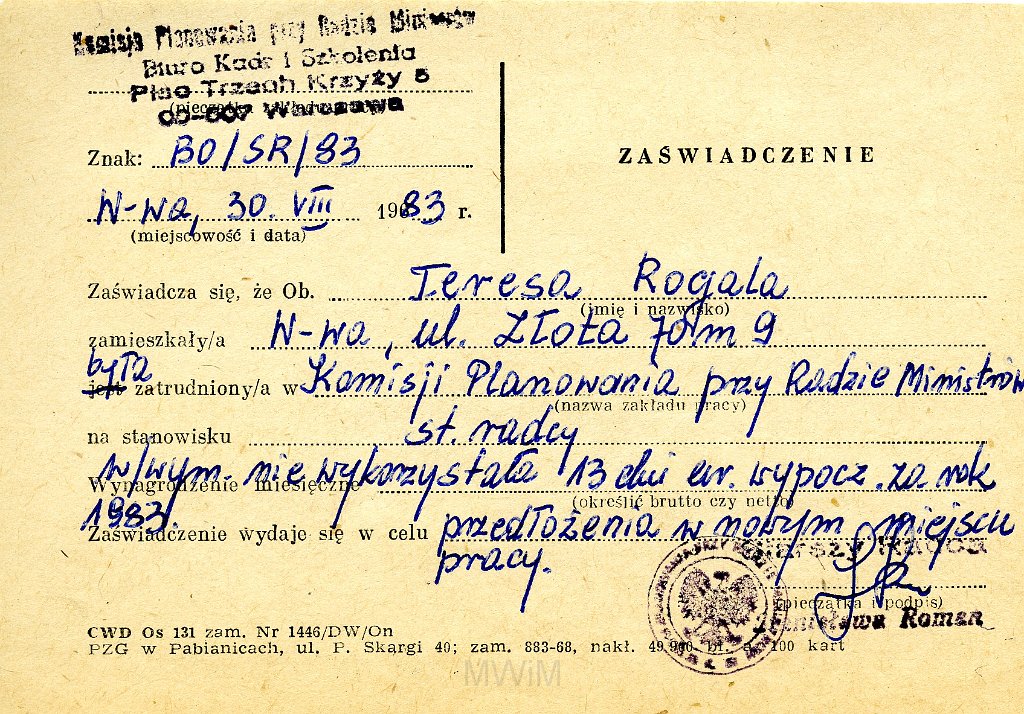 Komisja Planowania przy Radzie Ministrów
Biuro Kadr i Szkolenia
Plac Trzech Krzyży 5
00-507 Warszawa
(pieczątka zakładu pracy)
Znak: BO/SR/83
ZAŚWIADCZENIE
W-wa, 30. VIII 1983 r.
(miejscowość i data)
Zaświadcza się, że Ob. Teresa Rogala
(imię i nazwisko)
zamieszkały/a W-wa, ul. Złota 70 m 9
była
jest zatrudniony/a w Komisji Planowania przy Radzie Ministrów
(nazwa zakładu pracy)
na stanowisku st. radcy
w/wym. nie wykorzystała 13 dni ur. wypocz. za rok
Wynagrodzenie miesięczne
(określić brutto czy netto)
1983.
Zaświadczenie wydaje się w celu przedłożenia w nowym miejscu
pracy.
Radca
(pieczątka i podpis)
Roman
CWD Os 131 zam. Nr 1446/DW/On
PZG w Pabianicach, ul. P. Skargi 40; zam. 883-68, nakł. 49.900 bl. a 100 kart
MWiM